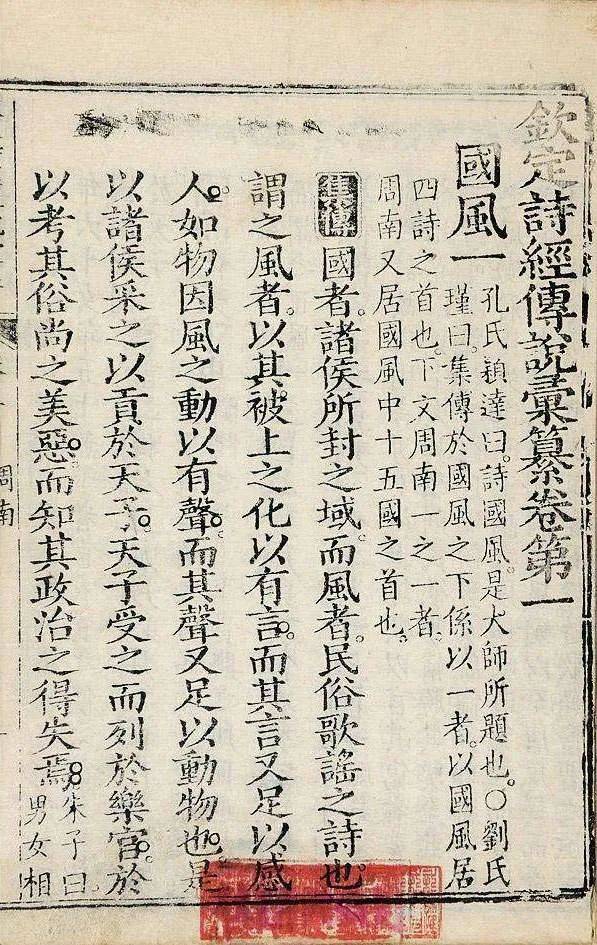 欽定詩經傳說彙纂卷第一
國風一
孔氏穎達曰。詩國風。是大師所題也。○劉氏
瑾曰。集傳於國風之下係以一者。以國風居
四詩之首也。下文周南一之一者。
周南又居國風中十五國之首也。
集傳 國者。諸侯所封之域。而風者。民俗歌謠之詩也
謂之風者。以其被上之化以有言。而其言又足以感
人。如物因風之動以有聲。而其聲又足以動物也。是
以諸侯采之以貢於天子。天子受之而列於樂官。於
以考其俗尚之美惡。而知其政治之得失焉。
朱子曰。
男女相
周南